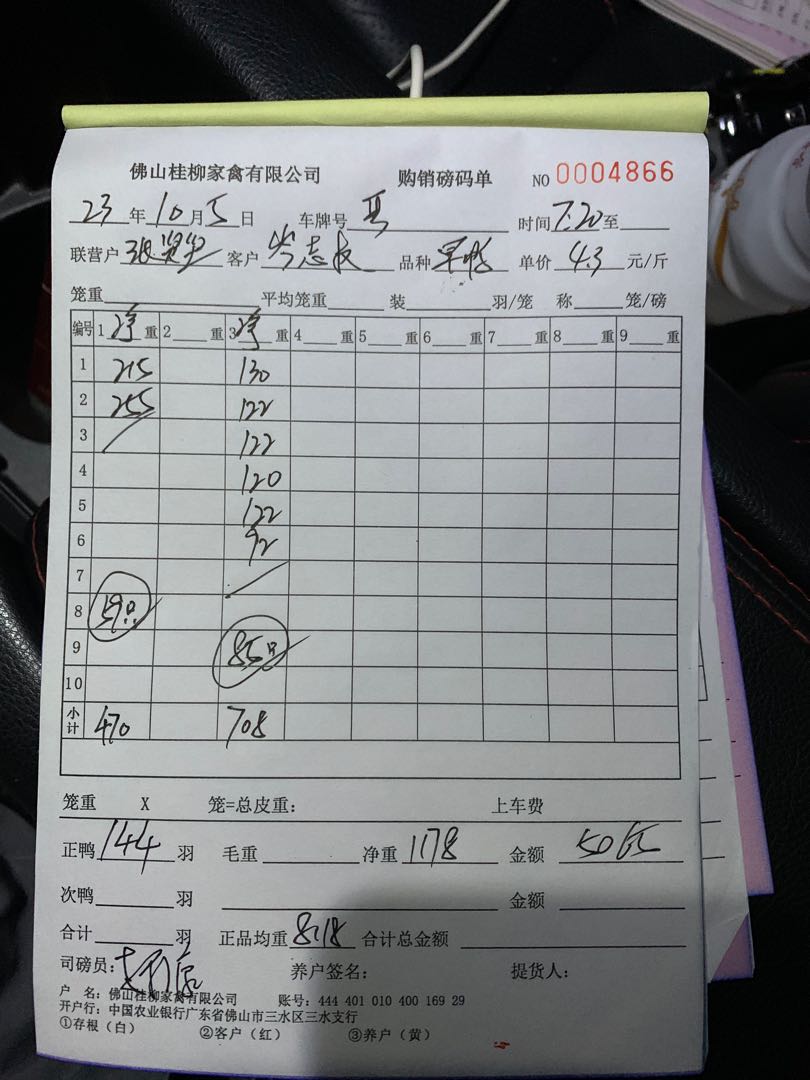 佛山桂柳家禽有限公司 购销磅码单 NO 0004866
23 年 10 月 5 日 车牌号 时间 7:20 至
联营户 客户 岑志 品种 单价 4.3 元/斤
笼重 平均笼重 装 羽/笼 称 笼/磅
编号 1 净 重 2 重 3 净 重 4 重 5 重 6 重 7 重 8 重 9 重
1 215 130
2 255 122
3 122
4 120
5 122
6 92
7
8 59只
9 85只
10
小计 470 708
笼重 X 笼=总皮重: 上车费
正鸭 144 羽 毛重 净重 1178 金额 5065
次鸭 羽 金额
合计 羽 正品均重 8.18 合计总金额
司磅员: 养户签名: 提货人:
户 名: 佛山桂柳家禽有限公司 账号: 444 401 010 400 169 29
开户行: 中国农业银行广东省佛山市三水区三水支行
①存根(白) ②客户(红) ③养户(黄)